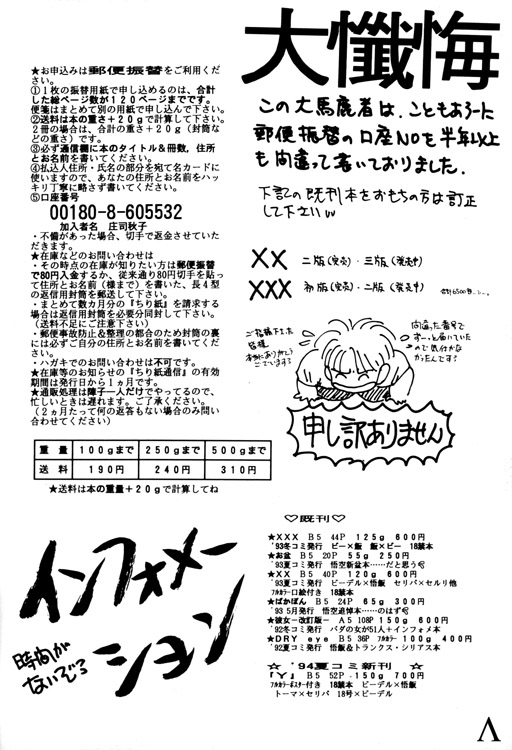 ★お申込みは郵便振替をご利用くだ
さい。
①1枚の振替用紙で申し込めるのは、合計
した総ページ数が120ページまでです。
便箋はまとめて別の用紙で申し込んで下さい。
②送料は本の重さ+20gで計算して下さい。
2冊の場合は、合計の重さ+20g(封筒など
の重さ)です。
③必ず通信欄に本のタイトル&冊数,住所
とお名前を書いてください。
④払込人住所・氏名の部分を宛て名カードに
使いますので、あなたの住所とお名前をハッ
キリ丁寧に略さず書いてください。
⑤口座番号
00180-8-605532
加入者名 庄司秋子
・不備があった場合、切手で返金させていた
だきます。
★在庫などのお問い合わせは
・その時点の在庫が知りたい方は郵便振替
で80円入金するか、従来通り80円切手を貼っ
て住所とお名前(様まで)を書いた、長4型
の返信用封筒を郵送して下さい。
・まとめて数カ月分の『ちり紙』を請求する
場合は返信用封筒を必要分同封して下さい。
(送料不足にご注意下さい)
・郵便事故防止&整理の都合のため封筒の裏
には必ずご自分の住所とお名前を書いてくだ
さい。
・ハガキでのお問い合わせは不可です。
★在庫等のお知らせの『ちり紙通信』の有効
期間は発行日から1ヵ月です。
★通販処理は障子一人だけでやってるので、
忙しいときは遅れます。ご了承ください。
(2ヵ月たって何の返答もない場合のみ問い
合わせてください)
重量 100gまで 250gまで 500gまで
送料 190円 240円 310円
★送料は本の重量+20gで計算してね
インフォメー
ション
時間が
ないぞぅ
大懺悔
この大馬鹿者は、こともあろーに
郵便振替の口座NOを半年以上
も間違って書いておりました。
下記の既刊本をおもちの方は訂正
して下さい
XX 二版(完売)・三版(発売中)
XXX 初版(完売)・二版(発売中)
合計6500冊
ご指摘下さった
皆様
本当にありがとう
ございます
間違った番号で
ずーっと届いていた
ので気付かな
かったんです!
申し訳ありません
♡既刊♡
★XXX B5 44P 125g 600円
'93冬コミ発行 ビー×飯 飯×ビー 18禁本
★お盆 B5 20P 55g 250円
'93夏コミ発行 悟空新盆本……だと思う
★XX B5 40P 120g 600円
'93夏コミ発行 ビーデル×悟飯 セリパ×セルリ他
フルカラー口絵付き 18禁本
★ばかぼん B5 24P 65g 300円
'93 5月発行 悟空追悼本…のはず
★彼女-改訂版- A5 108P 150g 600円
'92冬コミ発行 バダの女が51人+インフォメ本
★DRY eye B5 36P フルカラー 100g 400円
'92夏コミ発行 悟飯&トランクス・シリアス本
☆ '94夏コミ新刊 ☆
『Y』 B5 52P 150g 700円
フルカラーポスター付き 18禁本 ビーデル×悟飯
トーマ×セリパ 18号×ビーデル
Λ